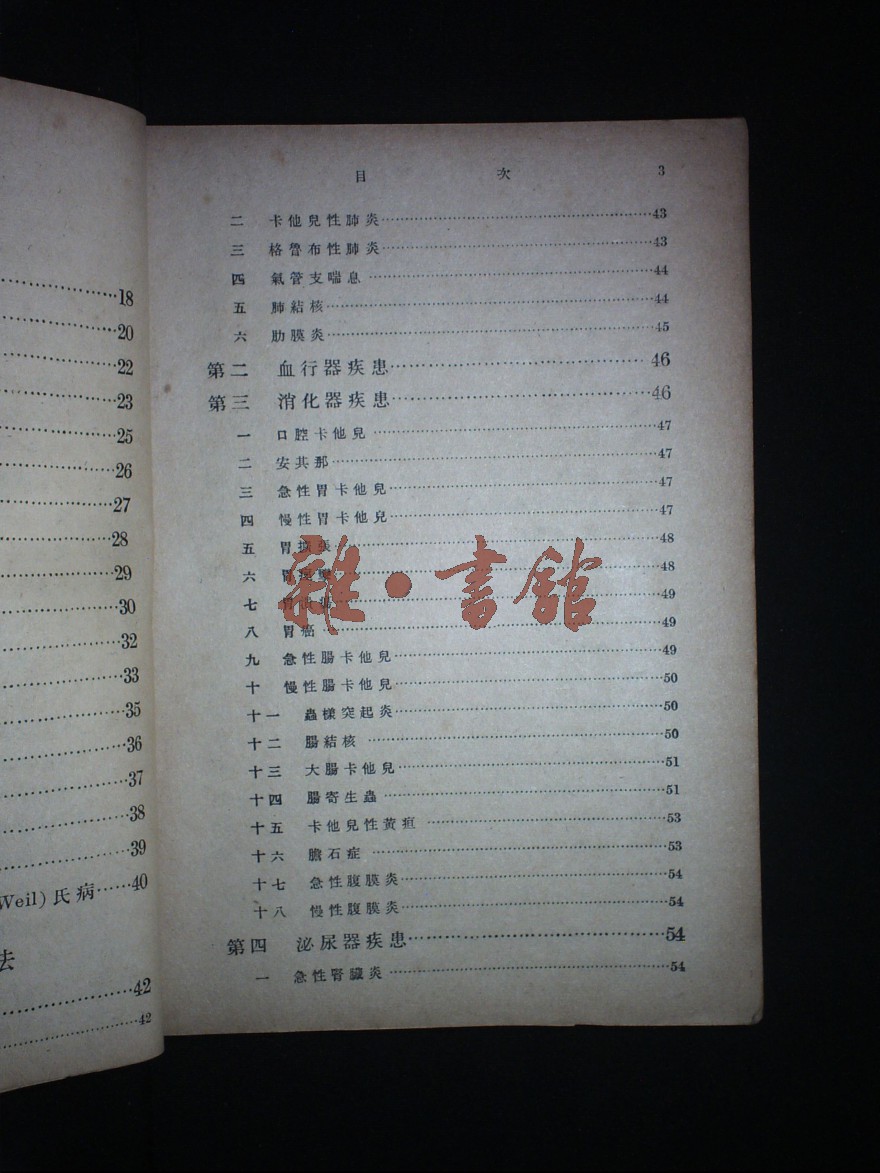 18
20
22
23
25
26
27
28
29
30
32
33
35
36
37
38
39
Weil)氏病……40
法
42
42
目 次 3
二 卡他兒性肺炎……43
三 格魯布性肺炎……43
四 氣管支喘息……44
五 肺結核……44
六 肋膜炎……45
第二 血行器疾患……46
第三 消化器疾患……46
一 口腔卡他兒……47
二 安其那……47
三 急性胃卡他兒……47
四 慢性胃卡他兒……47
五 胃擴張……48
六 胃……48
七 胃潰瘍……49
八 胃癌……49
九 急性腸卡他兒……49
十 慢性腸卡他兒……50
十一 蟲樣突起炎……50
十二 腸結核……50
十三 大腸卡他兒……51
十四 腸寄生蟲……51
十五 卡他兒性黃疸……53
十六 膽石症……53
十七 急性腹膜炎……54
十八 慢性腹膜炎……54
第四 泌尿器疾患……54
一 急性腎臟炎……54
雜·書舘